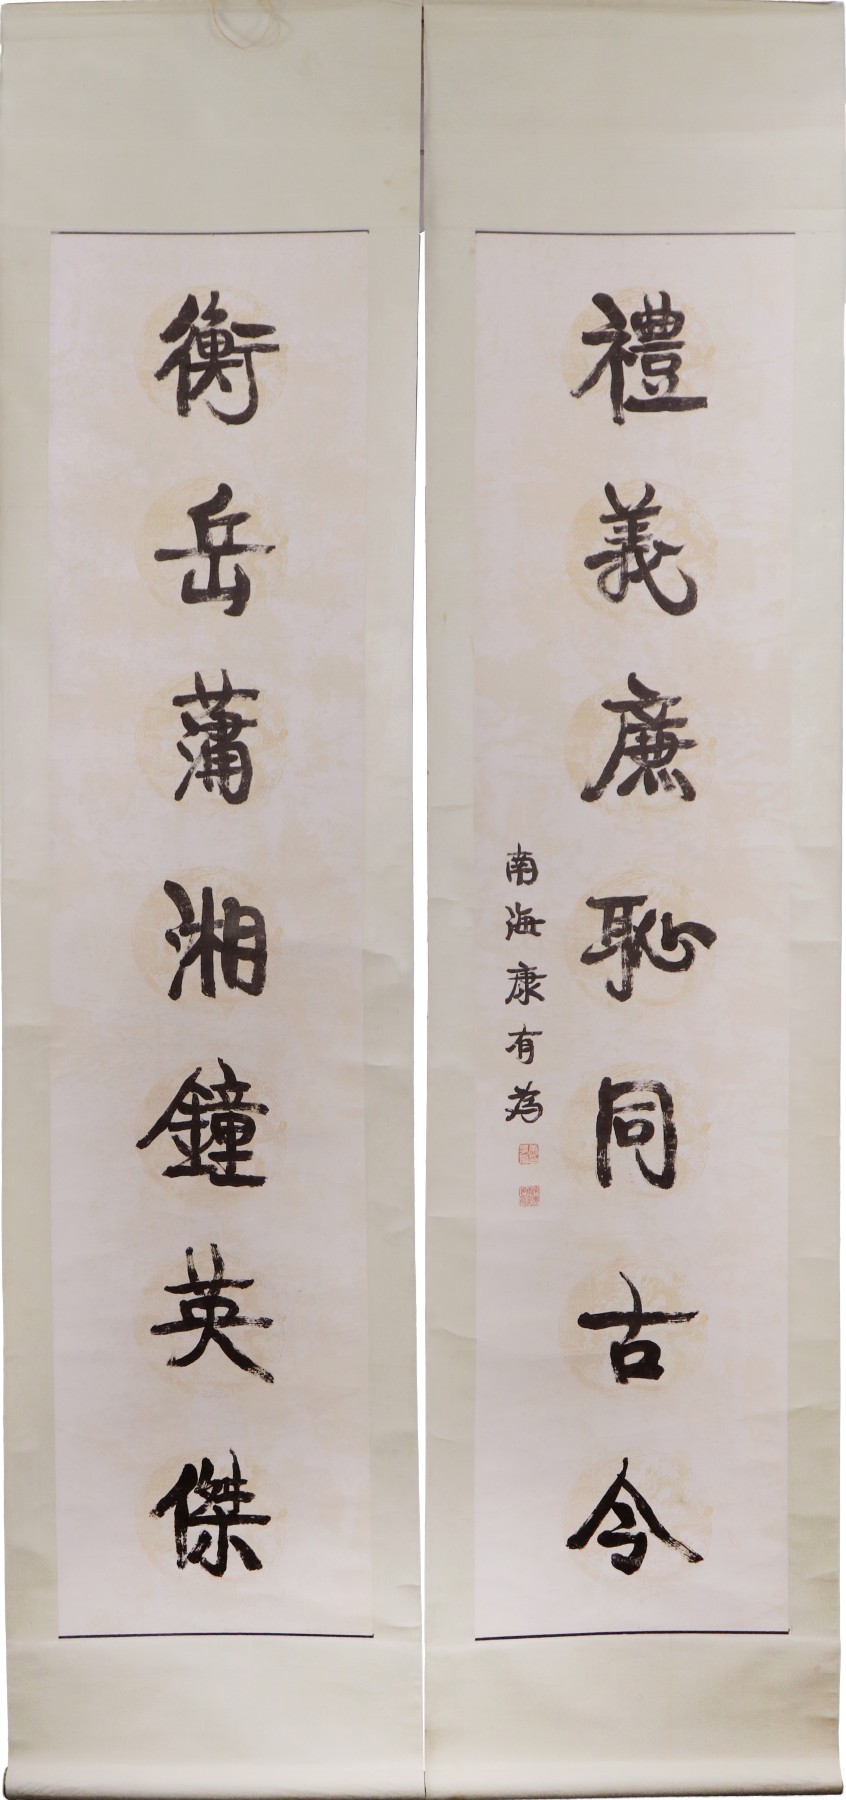 禮義廉恥同古今
南海康有為
衡岳蕭湘鐘英傑